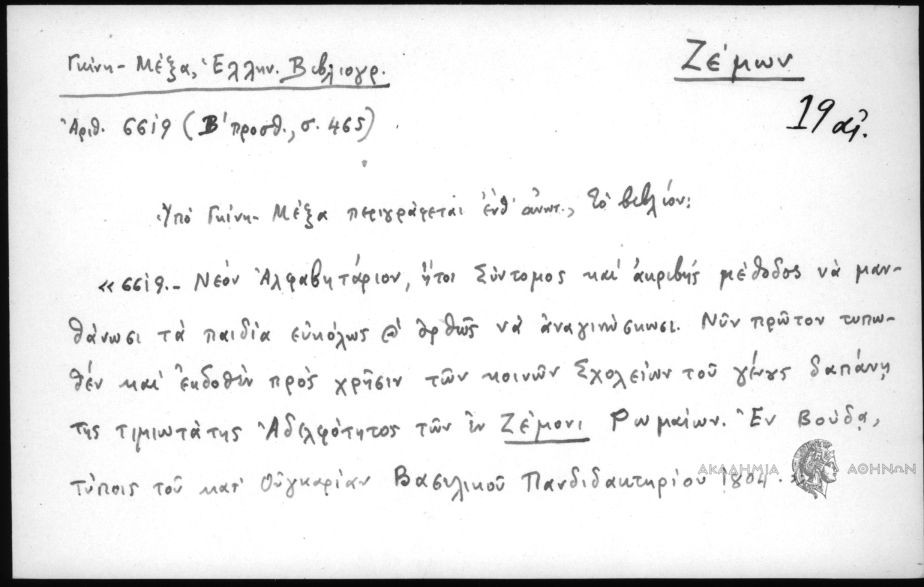 Γκίνη - Μέξα, Ἑλλην. Βιβλιογρ.
Ζέμων
Ἀριθ. 6619 (Β΄ προσθ., σ. 465).
19 αἰ.
Ὑπὸ Γκίνη - Μέξα περιγράφεται ἐνθ' ἀνωτ., τὸ βιβλίον:
«6619.- Νέον Ἀλφαβητάριον, ἤτοι Σύντομος καὶ ἀκριβὴς μέθοδος νὰ μαν-
θάνωσι τὰ παιδία εὐκόλως ϗ ὀρθῶς νὰ ἀναγινώσκωσι. Νῦν πρῶτον τυπω-
θὲν καὶ ἐκδοθὲν πρὸς χρῆσιν τῶν κοινῶν Σχολείων τοῦ γένους δαπάνῃ
τῆς τιμιωτάτης Ἀδελφότητος τῶν ἐν Ζέμονι Ρωμαίων. Ἐν Βούδᾳ,
τύποις τοῦ κατ' Οὐγκαρίαν Βασιλικοῦ Πανδιδακτηρίου 1804.»
ΑΚΑΔΗΜΙΑ ΑΘΗΝΩΝ